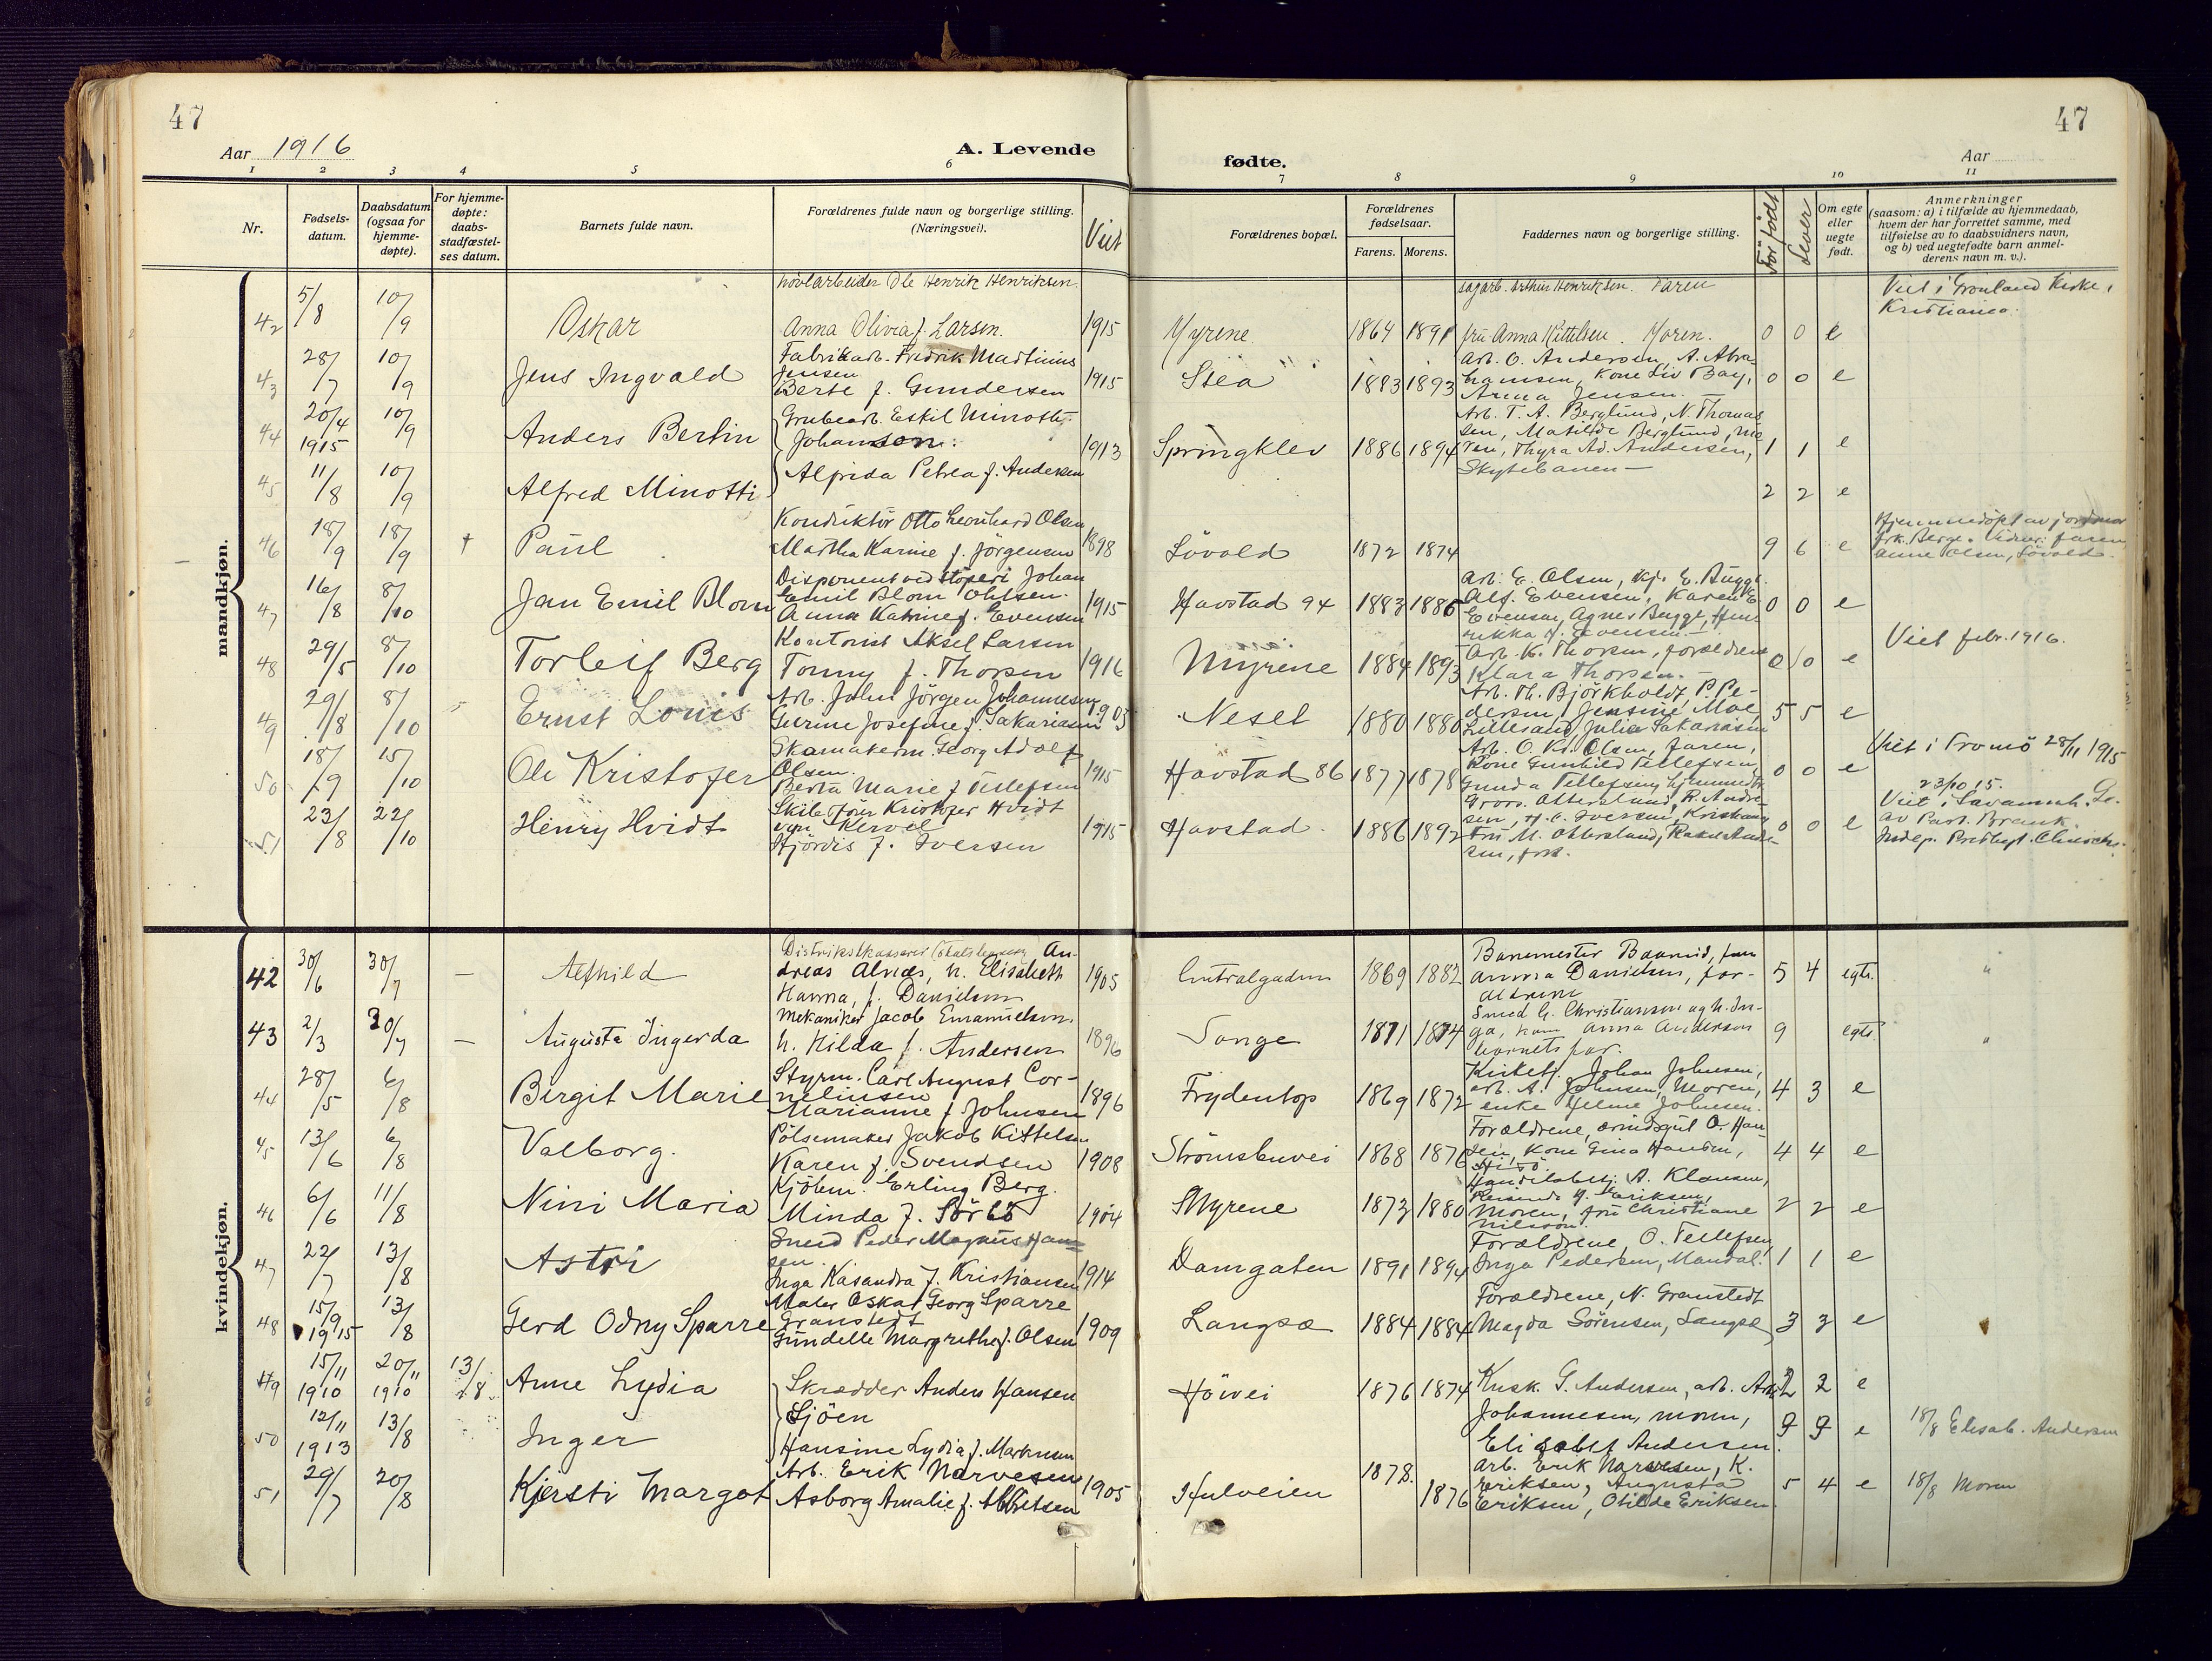 47
47
Aar 1916
A. Levende
fødte.
Aar
1 2 3 4 5 6 7 8 9 10 11
Nr.
Fødsels-
datum.
Daabsdatum
(ogsaa for
hjemme-
døpte).
For hjemme-
døpte:
daabs-
stadfæstel-
ses datum.
Barnets fulde navn.
Forældrenes fulde navn og borgerlige stilling.
(Næringsvei).
Viet
Forældrenes bopæl.
Forældrenes
fødselsaar.
Farens. Morens.
Faddernes navn og borgerlige stilling.
Før født
Lever
Om egte
eller
uegte
født.
Anmerkninger
(saasom: a) i tilfælde av hjemmedaab,
hvem der har forrettet samme, med
tilføielse av to daabsvidners navn,
og b) ved uegtefødte barn anmel-
derens navn m. v.).
mandkjøn.
høvlarbeider Ole Henrik Henriksen
sagarb. Arthur Henriksen. Faren
Viet i Grønland Kirke,
Kristiania.
42 5/8 10/9 Oskar Anna Olivia f. Larsen. 1915 Myrene 1864 1891 fru Anna Kittelsen. Moren. 0 0 e
Fabrikarb. Fredrik Martinius
Jensen
43 28/7 10/9 Jens Ingvald Berte f. Gundersen 1915 Stea 1883 1893 0 0 e
Arb. O. Andersen, A. Abra-
hamsen, Kone Liv Bay,
Anna Jensen. —
44 20/4 1915 10/9 Anders Bertin Grubearb. Eskil Minotti
Johansen. 1913 Springklev 1886 1894 1 1 e
Arb. T. A. Berglund, N. Thomas
sen, Matilde Berglund, mo
ren, Thyra Ad. Andersen,
Skytebanen —
45 11/8 10/9 Alfred Minotti Alfrida Petrea f. Andersen 2 2 e
Konduktør Otto Leonhard Olsen
46 18/9 18/9 † Paul Martha Karine f. Jörgensen 1898 Lövold 1872 1874 9 6 e
Hjemmedøpt av jordmor
frk. Berge. Vidner: faren,
Anne Olsen, Lövold.
Disponent ved støperi Johan
Emil Blom Ohlsen.
47 16/8 8/10 Jan Emil Blom Anna Katrine f. Evensen 1915 Havstad 94 1883 1886 0 0 e
Arb. E. Olsen, kjp. E. Bugge.
Alf. Evensen, Karen E.
Evensen, Agnes Bugge, Hen
rikka f. Evensen. —
Kontorist Aksel Larsen
48 29/5 8/10 Torleif Berg Tonny f. Thorsen 1916 Myrene 1884 1893 0 0 e
Arb. K. Thorsen, forældrene
Klara Thorsen. —
Viet febr. 1916.
49 29/8 8/10 Ernst Louis Arb. John Jörgen Johannesen
Gurine Josefine f. Sakariasen 1903 Nesel 1880 1880 5 5 e
Arb. Th. Björkholdt, P. Pe-
dersen, Jensine Moe,
Lillesand, Julia Sakariasen
Skomakerm. Georg Adolf
Olsen.
50 18/9 15/10 Ole Kristofer Berta Marie f. Tellefsen 1915 Havstad 86 1877 1878 0 0 e
Arb. O. Kr. Olsen, faren,
Kone Gunhild Tellefsen
Gunda Tellefsen,
Viet i Tromö 28/11 1915
Skibsfører Kristofer Hvidt
51 23/8 22/10 Henry Hvidt Hjördis f. Iversen 1915 Havstad. 1886 1892 0 0 e
Fru M. Ottersland,
23/10 15.
Viet i Savannah. Ge.
av Past. Brank.
kvindekjøn.
42 30/6 30/7 — Alfhild An-
dreas Alnæs, h. Elisabeth
Hanna, f. Danielsen 1905 Centralgaden 1869 1882 5 4 egte.
Banemester Baanrud, frøken
Anna Danielsen, for-
ældrene
43 2/3 30/7 — Augusta Ingerda Mekaniker Jacob Emanuelsen.
h. Hilda f. Andersen 1896 Songe 1871 1874 9 egte.
Smed G. Christiansen og h. In-
ga, kone Anna Andersen
barnets far.
44 28/5 6/8 Birgit Marie Styrm. Carl August Cor-
neliusen
Marianne f. Johnsen 1896 Frydentop 1869 1872 4 3 e
Johan Johnsen,
arb. A. Johnsen, Moren,
enke Helene Johnsen.
45 13/6 6/8 Valborg. Pölsemaker Jakob Kittelsen
Karen f. Svendsen 1908 Strömsbuvei 1868 1876 4 4 e
Forældrene, O. Han-
sen, Kone Gina Hansen,
Hisö.
46 6/6 11/8 Nini Maria Kjöbm. Erling Berg.
Minda f. Sörbö 1904 Myrene 1873 1880 2 2 e
A. Klausen,
Reisende H. Eriksen,
Moren, fru Christiane
Nilsson.
47 22/7 13/8 Astri Smed Peder Magnus Han-
sen.
Inga Kasandra f. Kristiansen 1914 Damgaten 1891 1894 1 1 e
Forældrene, O. Tellefsen,
Inga Pedersen, Mandal.
48 15/9 1915 13/8 Gerd Odny Sparre Maler Oskar Georg Sparre
Granstedt
Gundelle Margrethe f. Olsen 1909 Langsæ 1884 1884 3 3 e
Forældrene, N. Granstedt
Magda Sörensen, Langsæ
49 15/11 1910 20/11 1910 13/8 Anne Lydia Skrædder Anders Hansen
Sjöen Höivei 1876 1874 2 2 e
Kusk. G. Andersen, arb.
Johannesen, moren,
Elisabet Andersen.
50 12/11 1913 13/8 Inger Hansine Lydia f. Markussen e 18/8 Elisab. Andersen
51 29/7 20/8 Kjersti Margot Arb. Erik Narvesen
Aasborg Amalie f. 1905 Hulveien 1878. 1876 5 4 e 18/8 Moren
Arb. Erik Narvesen, K.
Eriksen, Augusta
Eriksen, Otilde Eriksen.